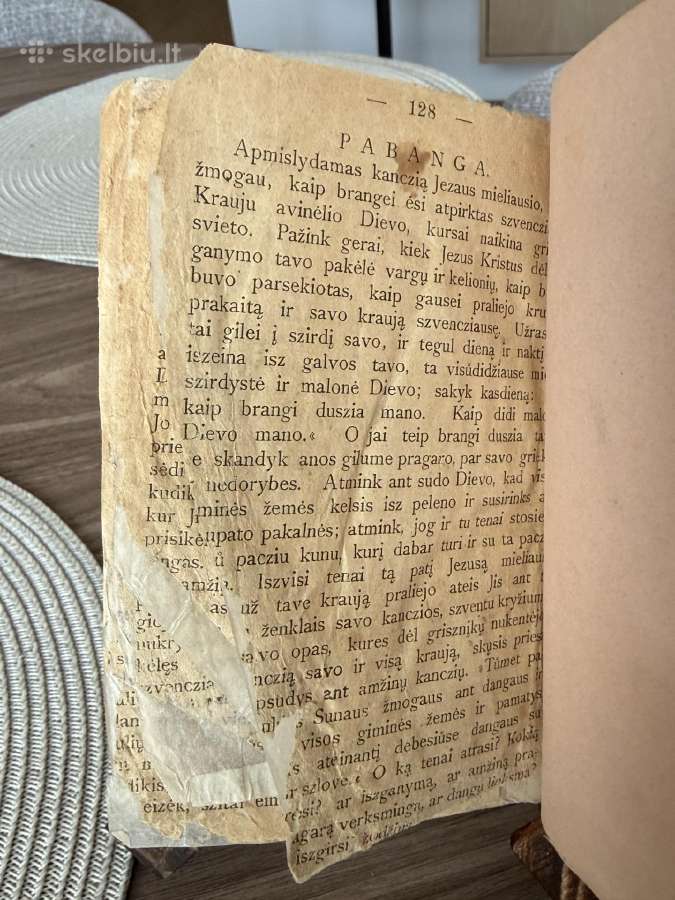 skelbiu.lt
— 128 —
PABANGA.
Apmislydamas kanczią Jezaus mieliausio,
žmogau, kaip brangei esi atpirktas szvenczi
Krauju avinėlio Dievo, kursai naikina gri
svieto. Pažink gerai, kiek Jezus Kristus dėl
ganymo tavo pakėlė vargų ir kelionių, kaip b
buvo parsekiotas, kaip gausei praliejo kru
prakaitą ir savo kraują szvencziausę. Užras
tai gilei į szirdį savo, ir tegul dieną ir naktį
iszeina isz galvos tavo, ta visûdidžiause mie
szirdystė ir malonė Dievo; sakyk kasdieną:
kaip brangi duszia mano. Kaip didi malo
Dievo mano.« O jai teip brangi duszia ta
e skandyk anos gilume pragaro, par savo griek
nedorybes. Atmink ant sudo Dievo, kad vis
iminės žemės kelsis isz peleno ir susirinks a
upato pakalnės; atmink, jog ir tu tenai stosie
û pacziu kunu, kurį dabar turi ir su ta pacz
amžia. Iszvisi tenai tą patį Jezusą mieliau
as už tave kraują praliejo ateis Jis ant
ženklais savo kanczios, szventu kryžium
avo opas, kures dėl grisznįkų nukentėjo
nczią savo ir visą kraują, skysis pries
psudys ant amžinų kanczių. »Tûmet pa
Sunaus žmogaus ant dangaus ir
visos giminės žemės ir pamatys
s ateinantį debesiûse dangaus su
ir szlove.« O ką tenai atrasi? Kokią
resi? ar iszganymą, ar amžiną pra
agarą verksmingą, ar dangų linksmą?
iszgirsi
a
m
Jo
prie
sėdi
kudik
kur J
prisikėl
ingas.
gie
nukr
kėlęs
szvencza
dikis
eizėk, szitai em